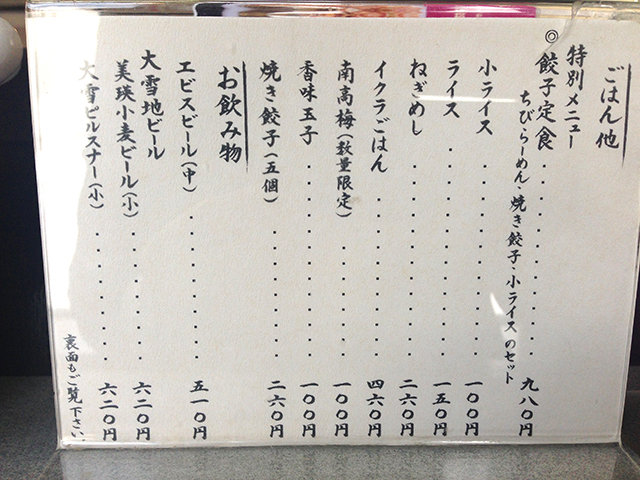 ごはん他
特別メニュー
◎餃子定食・・・・・・・・・・・・九八〇円
ちびらーめん・焼き餃子・小ライスのセット
小ライス・・・・・・・・・・・・一〇〇円
ライス・・・・・・・・・・・・一五〇円
ねぎめし・・・・・・・・・・・・二六〇円
イクラごはん・・・・・・・・・・・・四六〇円
南高梅(数量限定)・・・・・・・・一〇〇円
香味玉子・・・・・・・・・・・・一〇〇円
焼き餃子(五個)・・・・・・・・二六〇円
お飲み物
エビスビール(中)・・・・・・・・五一〇円
大雪地ビール
美瑛小麦ビール(小)・・・・・・・・六二〇円
大雪ピルスナー(小)・・・・・・・・六二〇円
裏面もご覧下さい